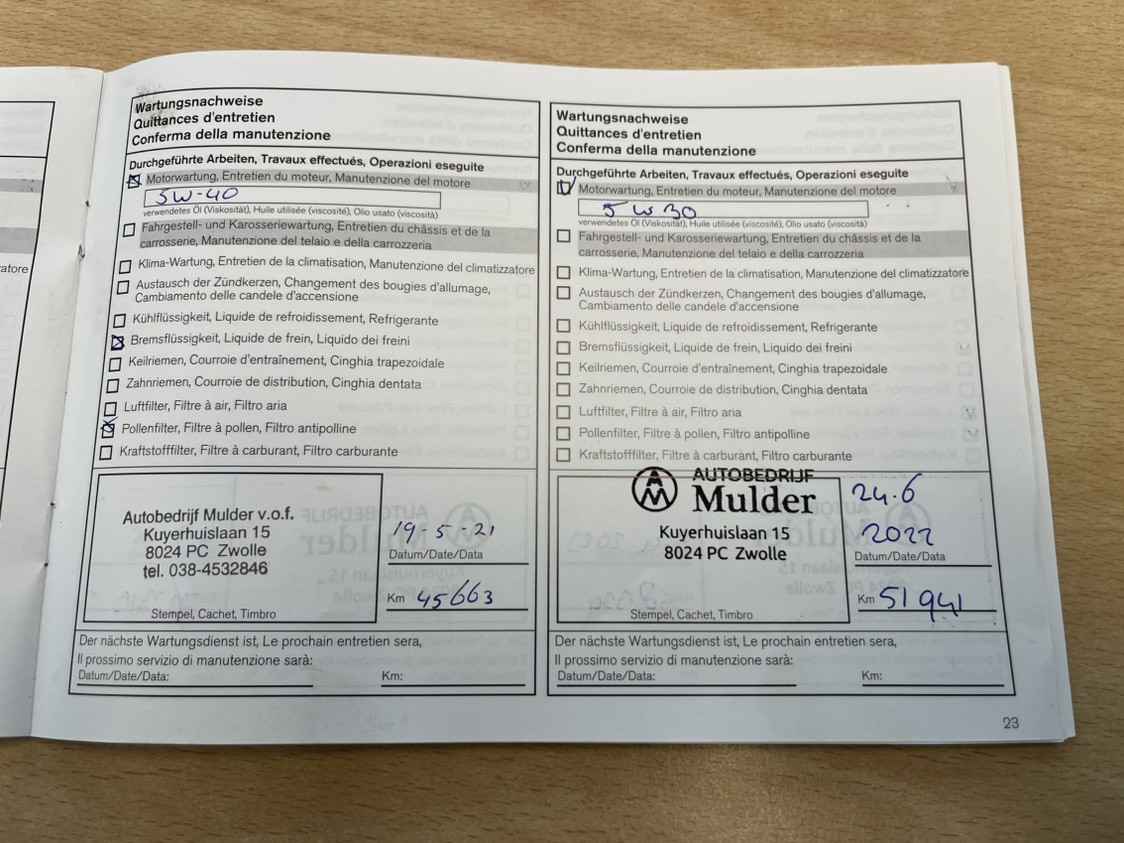 Wartungsnachweise
Quittances d'entretien
Conferma della manutenzione
Durchgeführte Arbeiten, Travaux effectués, Operazioni eseguite
Motorwartung, Entretien du moteur, Manutenzione del motore
5W-40
verwendetes Öl (Viskosität), Huile utilisée (viscosité), Olio usato (viscosità)
Fahrgestell- und Karosseriewartung, Entretien du châssis et de la
carrosserie, Manutenzione del telaio e della carrozzeria
Klima-Wartung, Entretien de la climatisation, Manutenzione del climatizzatore
Austausch der Zündkerzen, Changement des bougies d'allumage,
Cambiamento delle candele d'accensione
Kühlflüssigkeit, Liquide de refroidissement, Refrigerante
Bremsflüssigkeit, Liquide de frein, Liquido dei freini
Keilriemen, Courroie d'entraînement, Cinghia trapezoidale
Zahnriemen, Courroie de distribution, Cinghia dentata
Luftfilter, Filtre à air, Filtro aria
Pollenfilter, Filtre à pollen, Filtro antipolline
Kraftstofffilter, Filtre à carburant, Filtro carburante
Autobedrijf Mulder v.o.f.
Kuyerhuislaan 15
8024 PC Zwolle
tel. 038-4532846
Stempel, Cachet, Timbro
19-5-21
Datum/Date/Data
Km 45663
Der nächste Wartungsdienst ist, Le prochain entretien sera,
Il prossimo servizio di manutenzione sarà:
Datum/Date/Data: Km:
Wartungsnachweise
Quittances d'entretien
Conferma della manutenzione
Durchgeführte Arbeiten, Travaux effectués, Operazioni eseguite
Motorwartung, Entretien du moteur, Manutenzione del motore
5W30
verwendetes Öl (Viskosität), Huile utilisée (viscosité), Olio usato (viscosità)
Fahrgestell- und Karosseriewartung, Entretien du châssis et de la
carrosserie, Manutenzione del telaio e della carrozzeria
Klima-Wartung, Entretien de la climatisation, Manutenzione del climatizzatore
Austausch der Zündkerzen, Changement des bougies d'allumage,
Cambiamento delle candele d'accensione
Kühlflüssigkeit, Liquide de refroidissement, Refrigerante
Bremsflüssigkeit, Liquide de frein, Liquido dei freini
Keilriemen, Courroie d'entraînement, Cinghia trapezoidale
Zahnriemen, Courroie de distribution, Cinghia dentata
Luftfilter, Filtre à air, Filtro aria
Pollenfilter, Filtre à pollen, Filtro antipolline
Kraftstofffilter, Filtre à carburant, Filtro carburante
AUTOBEDRIJF
Mulder
Kuyerhuislaan 15
8024 PC Zwolle
Stempel, Cachet, Timbro
24.6
2022
Datum/Date/Data
Km 51941
Der nächste Wartungsdienst ist, Le prochain entretien sera,
Il prossimo servizio di manutenzione sarà:
Datum/Date/Data: Km:
23